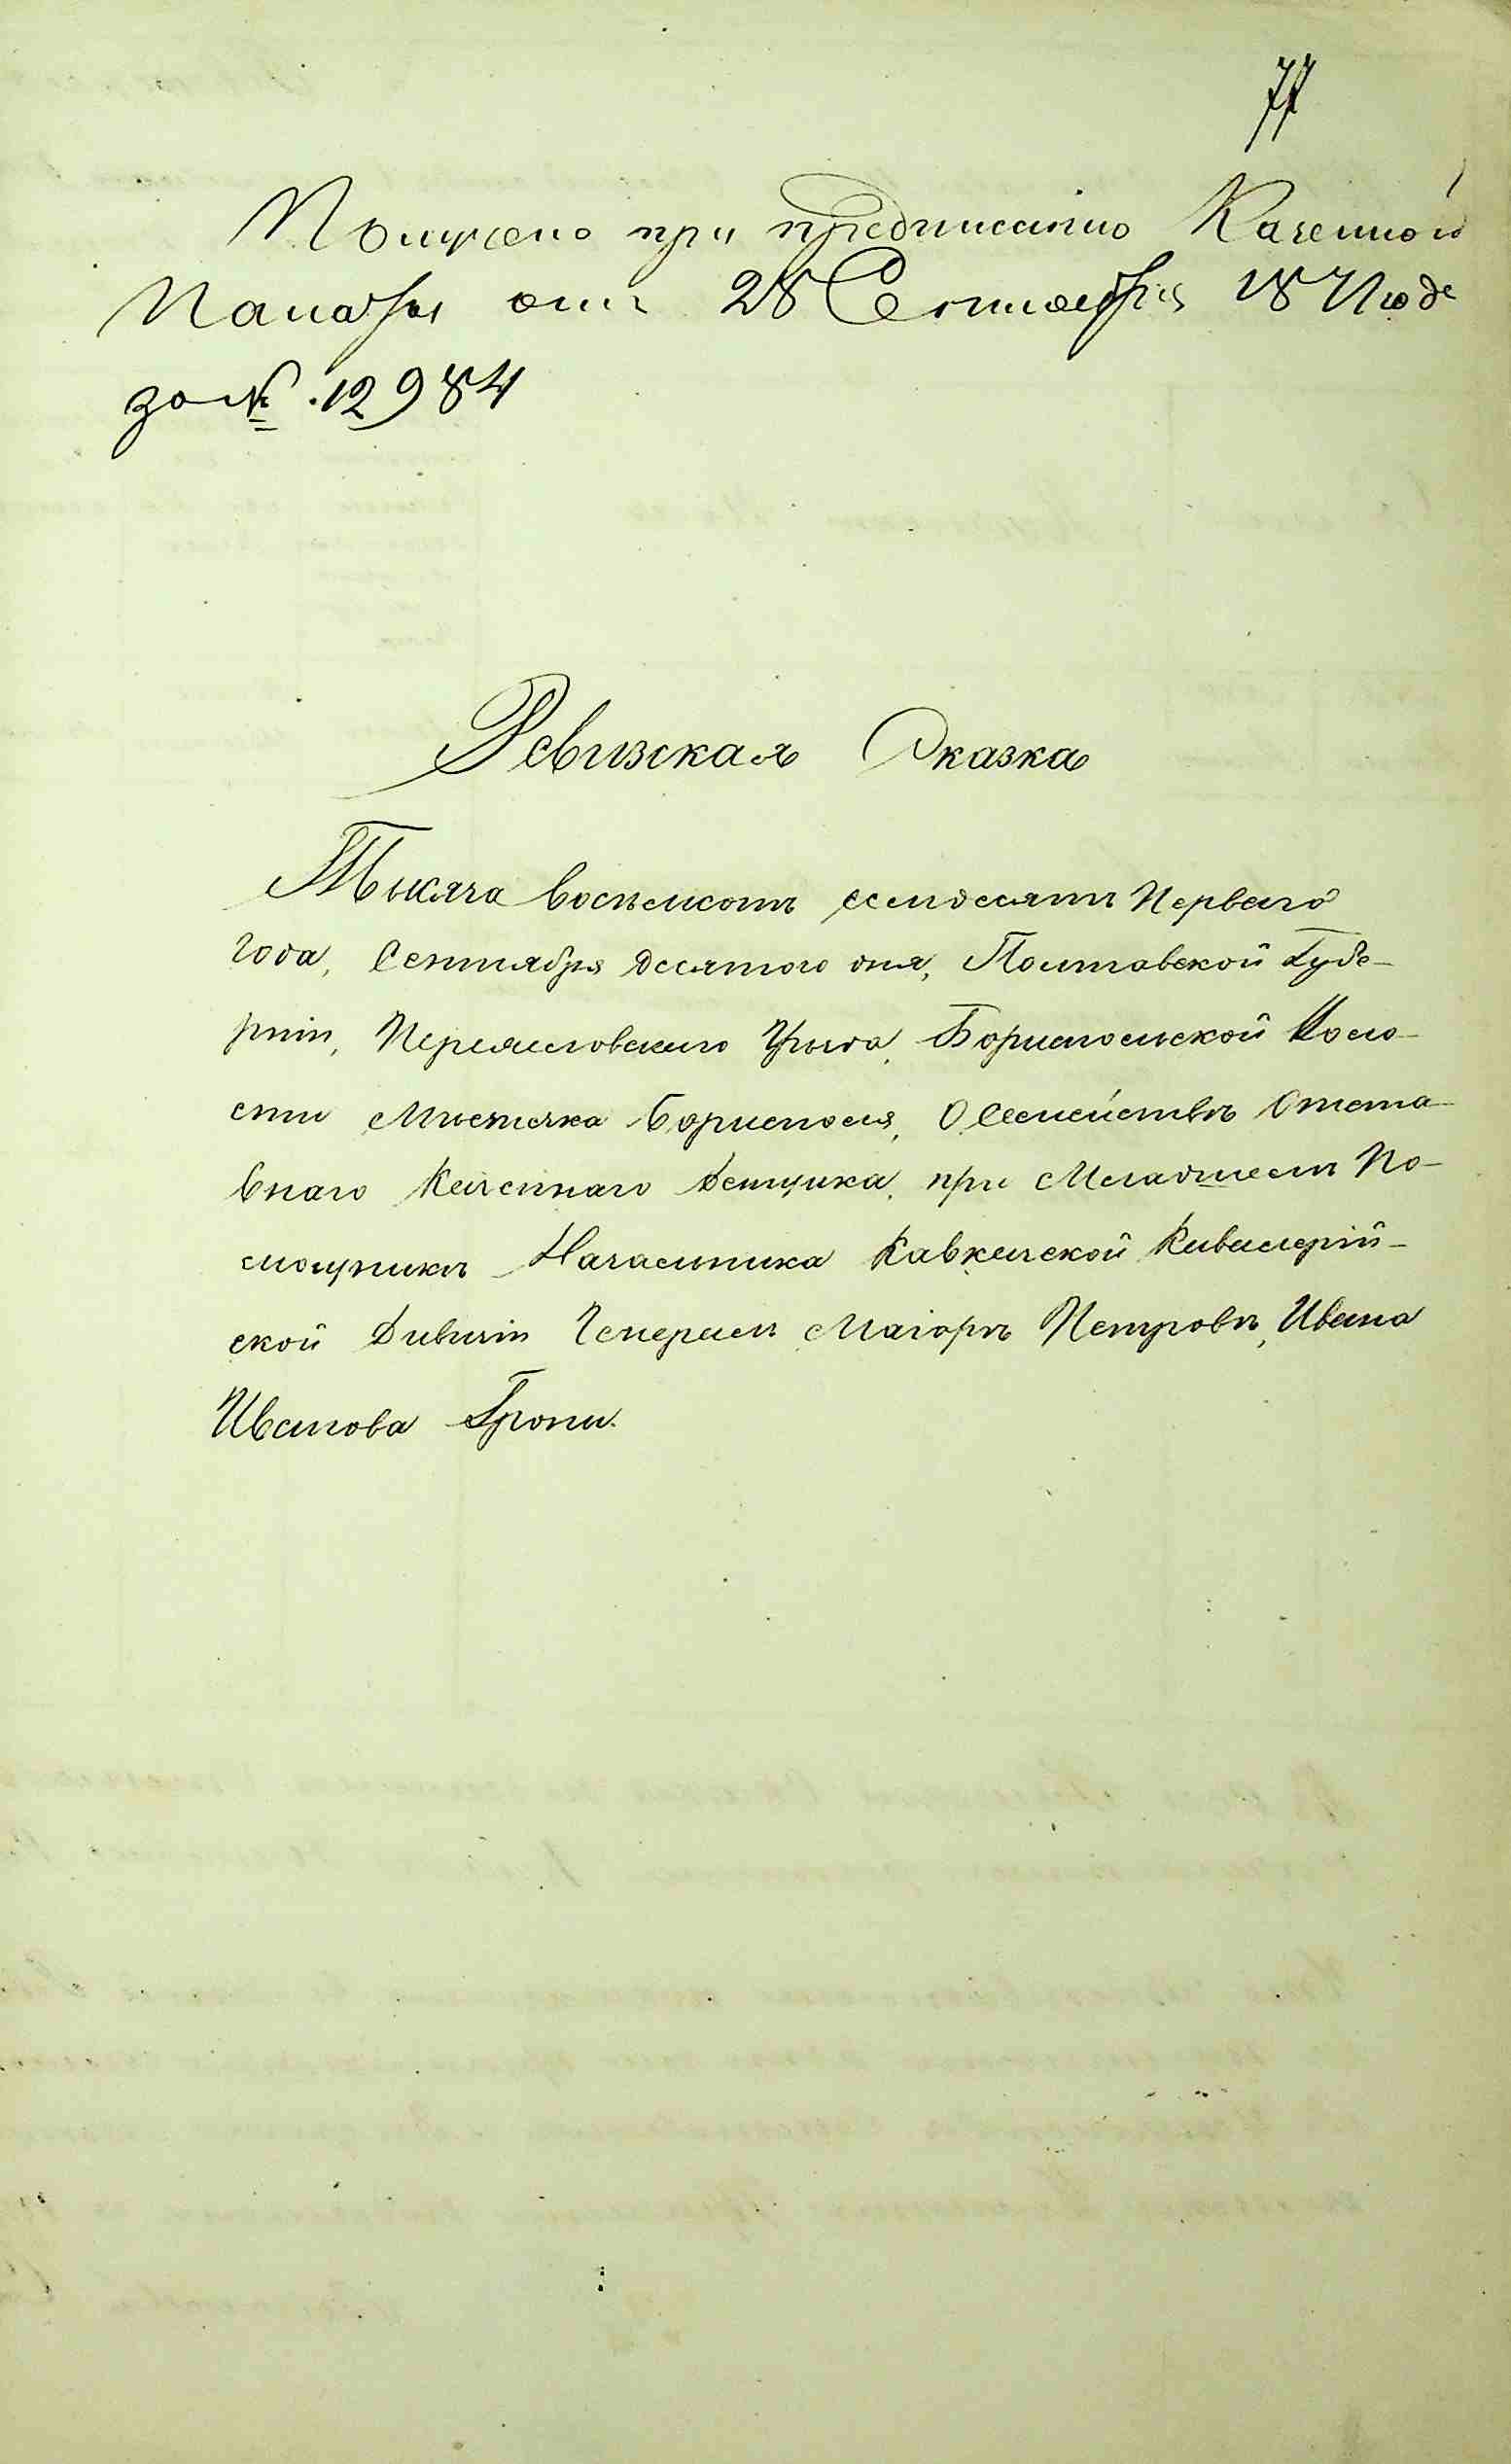 77
Получено при предписанию Казенной
Палаты отъ 28 Сентября 1871 года
за № 12984
Ревизская Сказка
Тысяча восемсотъ семдесятъ Перваго
Года, Сентября десятого дня, Полтавской Губе-
рніи, Переяславскаго Уѣзда, Бориспольской Воло-
сти Мѣстечка Борисполя, О Семействѣ Отста-
внаго Казеннаго Денщика, при Младшемъ По-
мощникѣ Начальника Кавказской Кавалерій-
ской Дивизіи Генералъ Маіорѣ Петровѣ, Ивана
Иванова